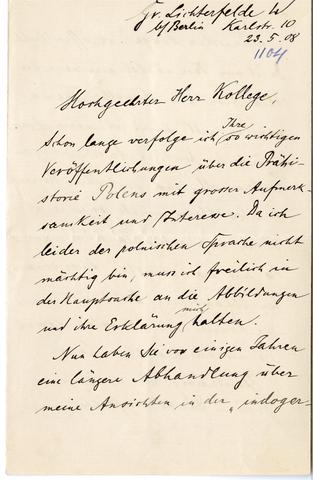 Gr. Lichterfelde W
b/Berlin Karlstr. 10
23.5.08
1104
Hochgeehrter Herr Kollege,
Schon lange verfolge ich Ihre so wichtigen
Veröffentlichungen über die Prähi-
storie Polens mit grosser Aufmerk-
samkeit und Interesse. Da ich
leider der polnischen Sprache nicht
mächtig bin, muss ich freilich in
der Hauptsache an die Abbildungen
und ihre Erklärung mich halten.
Nun haben Sie vor einigen Jahren
eine längere Abhandlung über
meine Ansichten in der „indoger-